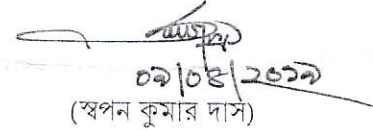 ০৯|০৪|২০১৯
(স্বপন কুমার দাস)